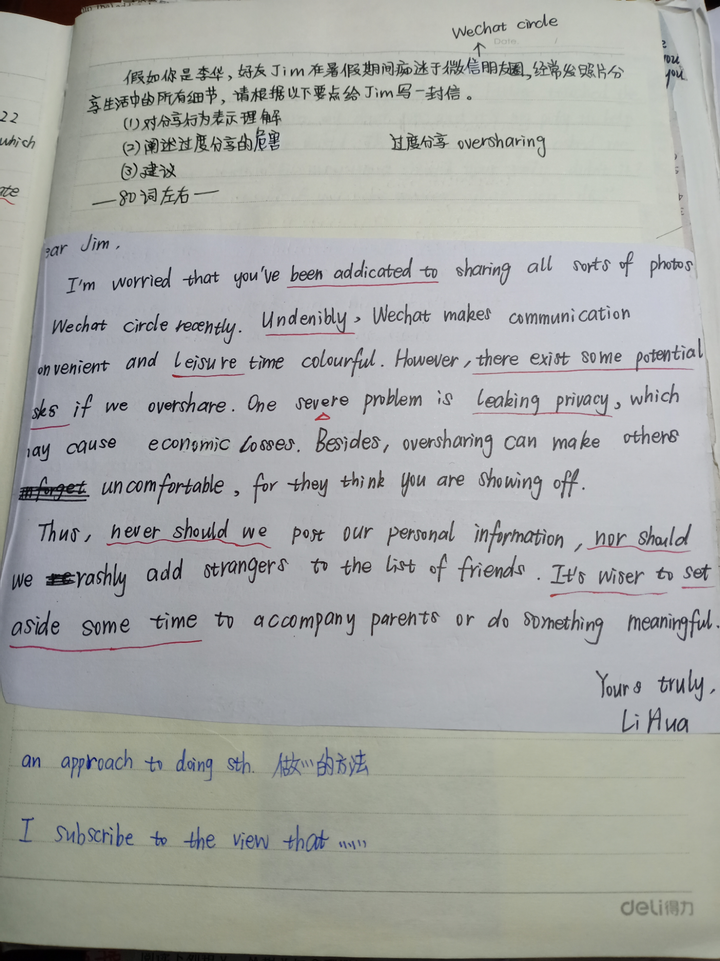 WeChat circle
Date
假如你是李华,好友Jim在暑假期间痴迷于微信朋友圈,经常发照片分
享生活中的所有细节,请根据以下要点给Jim写一封信。
(1)对分享行为表示理解
(2)阐述过度分享的危害 过度分享 oversharing
(3)建议
—80词左右—
22
which
ate
you
ear Jim,
I'm worried that you've been addicated to sharing all sorts of photos
Wechat circle recently. Undenibly, Wechat makes communication
onvenient and leisure time colourful. However, there exist some potential
sks if we overshare. One severe problem is leaking privacy, which
ay cause economic losses. Besides, oversharing can make others
uncomfortable, for they think you are showing off.
Thus, never should we post our personal information, nor should
we rashly add strangers to the list of friends. It's wiser to set
aside some time to accompany parents or do something meaningful.
Yours truly,
Li Hua
an approach to doing sth. 做…的方法
I subscribe to the view that ……
deli得力